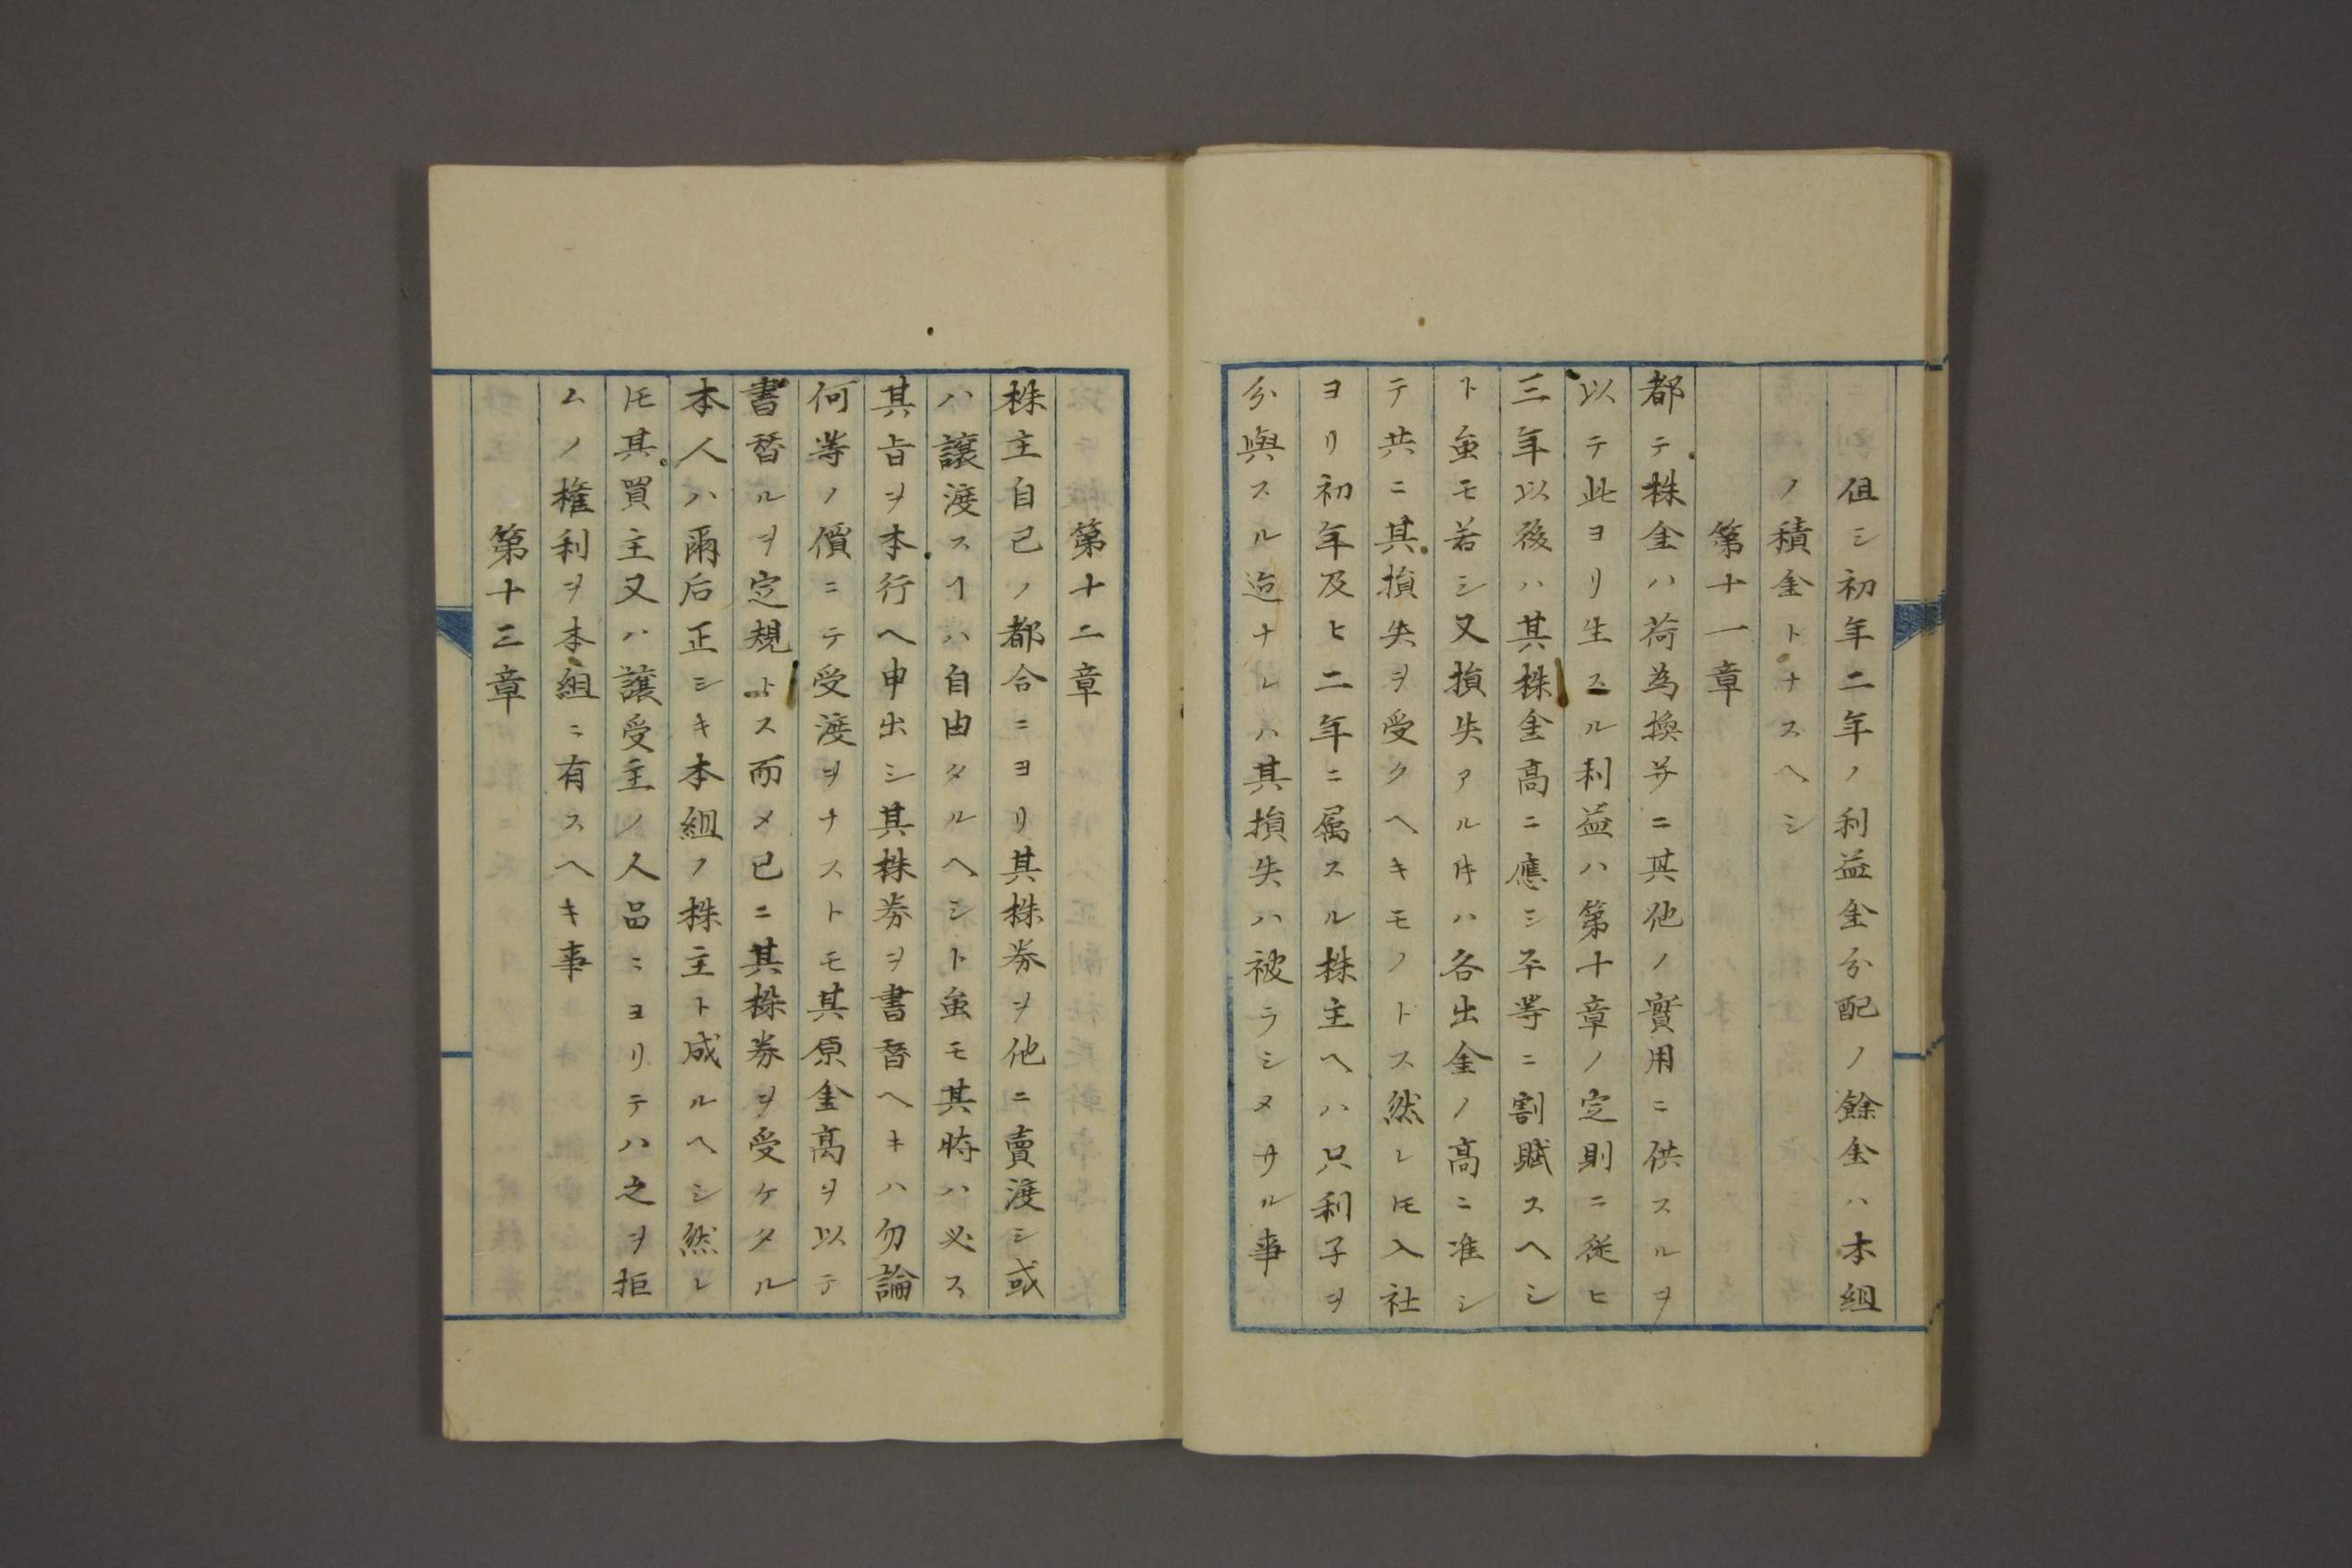 但シ初年二年ノ利益金分配ノ餘金ハ本組
ノ積金トナスヘシ
第十一章
都テ株金ハ荷為換并ニ其他ノ實用ニ供スルヲ
以テ此ヨリ生スル利益ハ第十章ノ定則ニ従ヒ
三年以後ハ其株金高ニ應シ平等ニ割賦スヘシ
ト虽モ若シ又損失アルㇳキハ各出金ノ高ニ准シ
テ共ニ其損失ヲ受クヘキモノトス然レ𪜈入社
ヨリ初年及ヒ二年ニ属スル株主ヘハ只利子ヲ
分與スル迨ナレハ其損失ハ被ラシヌサル事
第十二章
株主自己ノ都合ニヨリ其株券ヲ他ニ賣渡シ或
ハ譲渡スヿハ自由タルヘシト虽モ其時ハ必ス
其旨ヲ本行ヘ申出シ其株券ヲ書替ヘキハ勿論
何等ノ價ニテ受渡ヲナストモ其原金高ヲ以テ
書替ルヲ定規トス而メ已ニ其株券ヲ受ケタル
本人ハ爾后正シキ本組ノ株主ト成ルヘシ然レ
𪜈其買主又ハ譲受主ノ人品ニヨリテハ之ヲ拒
ムノ権利ヲ本組ニ有スヘキ事
第十三章